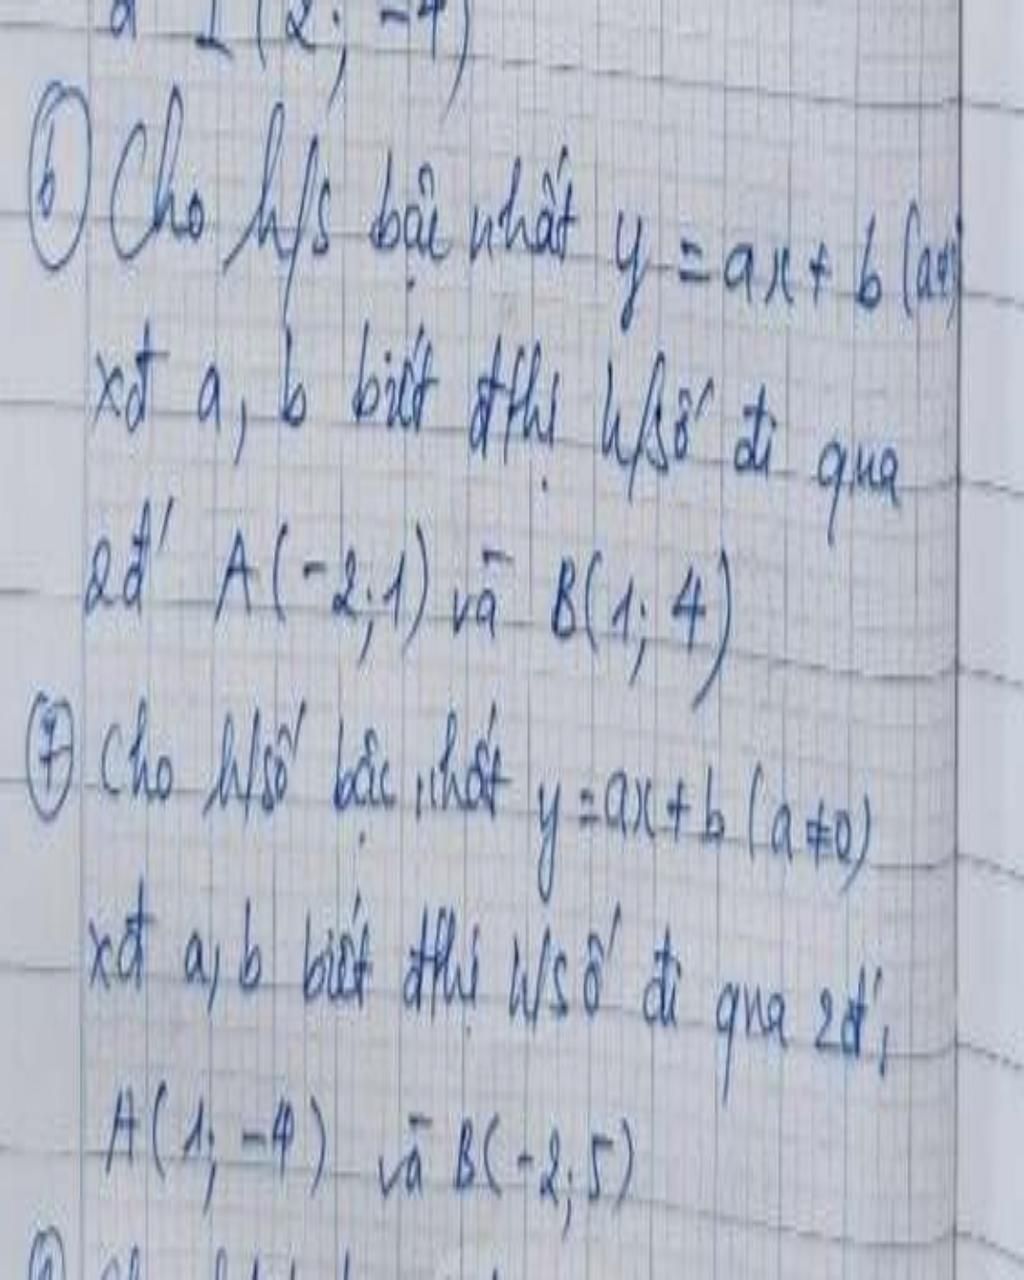 I (2; -4)
⑥ Cho h/s bậc nhất y = ax + b (a≠0)
xđ a, b biết đthị h/số đi qua
2đ' A(-2;1) và B(1; 4)
⑦ Cho h/số bậc nhất y = ax + b (a ≠ 0)
xđ a, b biết đthị h/số đi qua 2đ',
A(1; -4) và B(-2; 5)